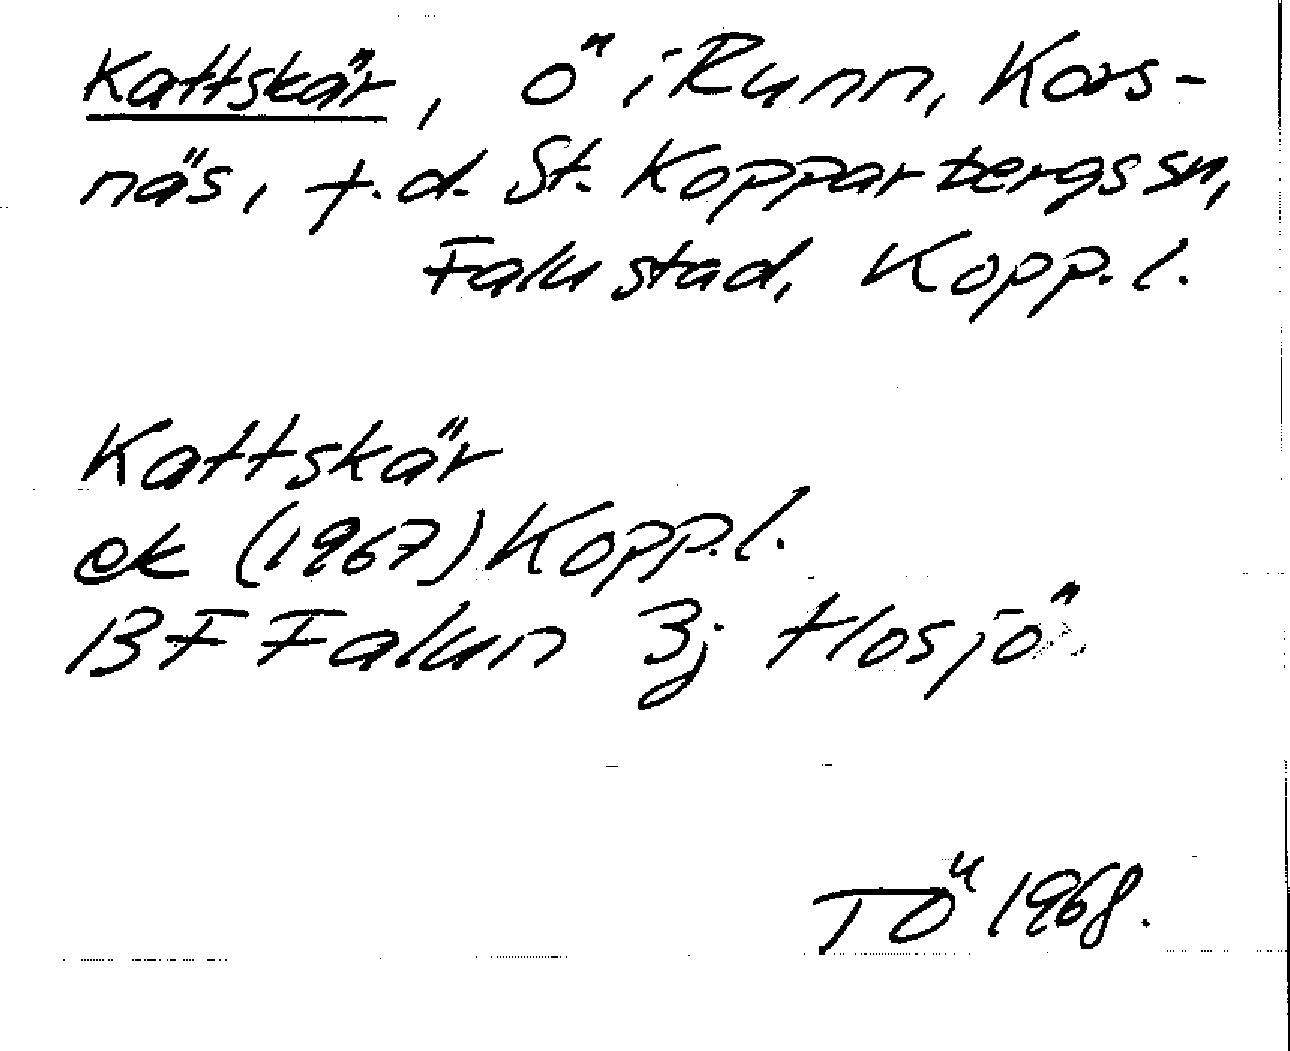 Kattskär, ö i Runn, Kors-
näs, f.d. St. Kopparbergs sn,
Falu stad, Kopp. l.
Kattskär
ek (1967) Kopp. l.
BF Falun 3j Hosjö
TÖ 1968.